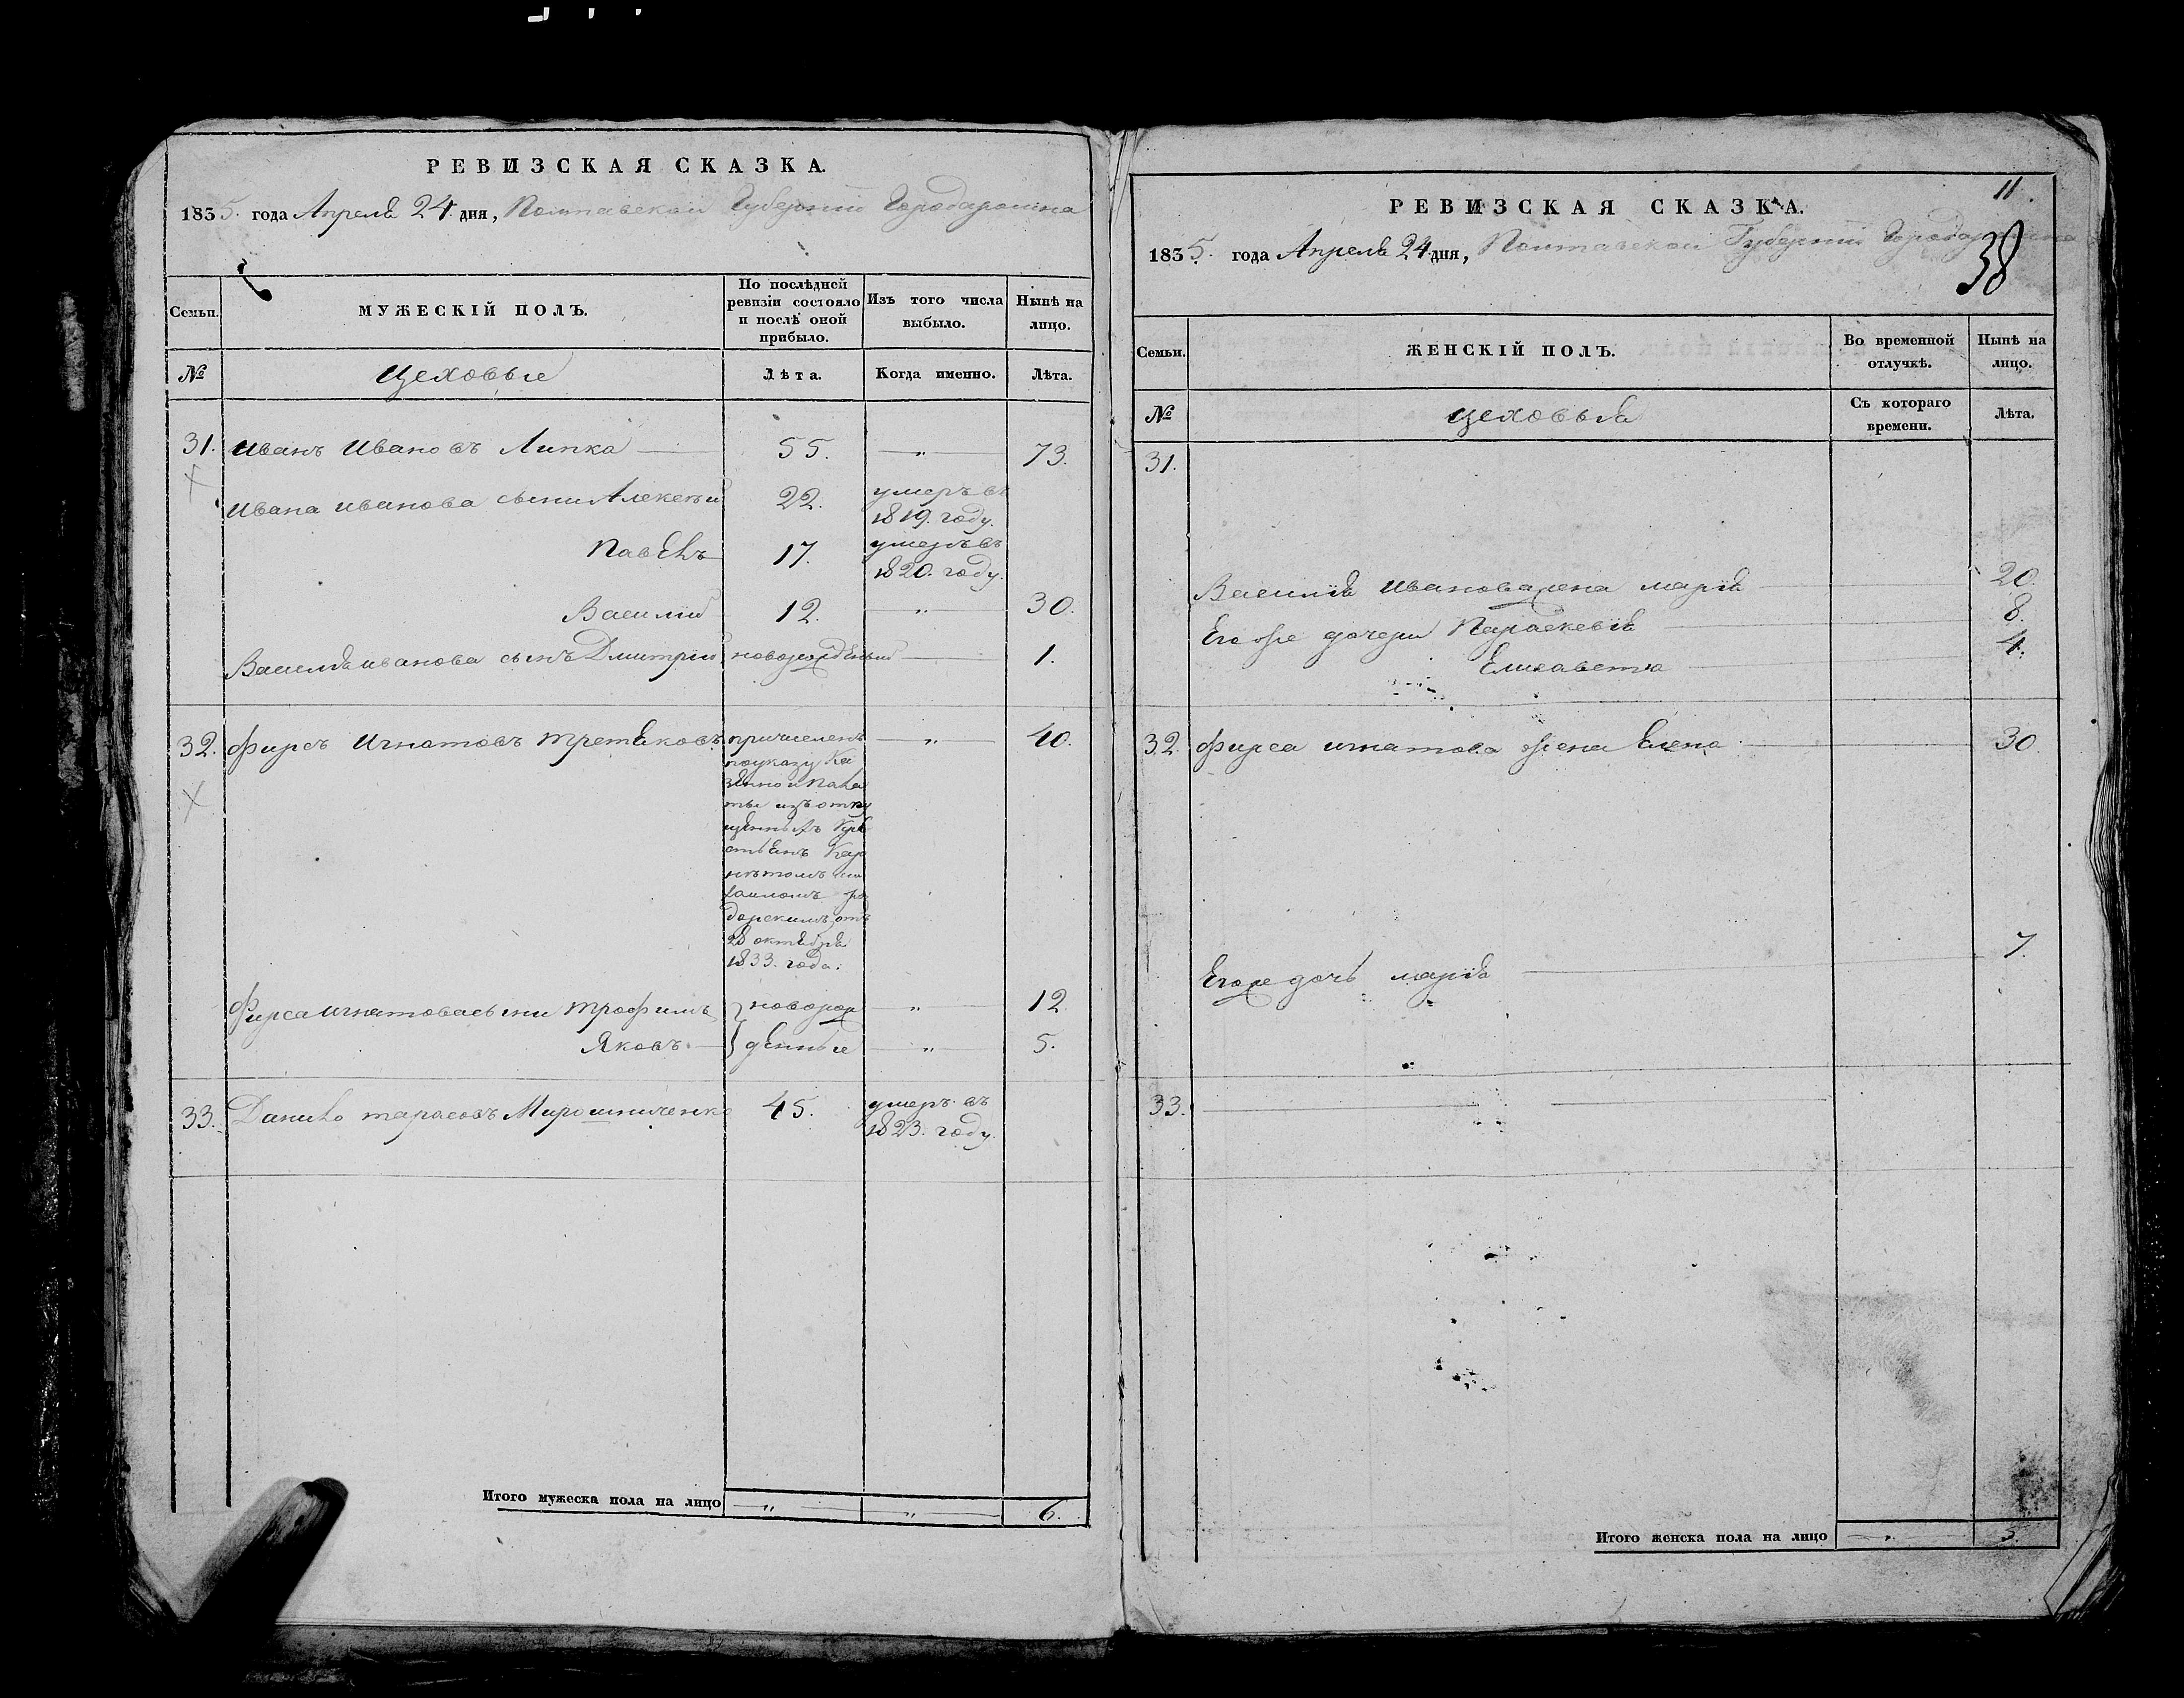 РЕВИЗСКАЯ СКАЗКА.
1835. года Апреля 24 дня, Полтавской Губернии Города ромна
Семьи.
МУЖЕСКІЙ ПОЛЪ.
По послѣдней ревизіи состояло и послѣ оной прибыло.
Изъ того числа выбыло.
Нынѣ на лицо.
№
Цеховые
Лѣта.
Когда именно.
Лѣта.
31. Иванъ Ивановъ Липка 55. — „ — 73.
Ивана иванова сыни Алексѣй 22. умеръ въ
1819. году.
Павелъ 17. умеръ въ
1820. году.
Василій 12. — „ — 30.
Василія иванова сынъ Дмитрій новорожденый — 1.
32. Фирсъ Игнатовъ третяковъ причисленъ — „ — 40.
поуказу Ка
зенной пала
ты изъ отпу
щенныхъ Кре
стьянъ Кор
нетомъ
отъ
28 октября
1833. года.
Фирса игнатова сыни трофимъ } новорож — „ — 12
Яковъ } денные — „ — 5.
33. Данило тарасовъ Мирошниченко 45. умеръ въ
1823. году.
Итого мужеска пола на лицо — „ — — „ — 6.
11.
38
РЕВИЗСКАЯ СКАЗКА.
1835. года Апреля 24 дня, Полтавской Губернии Города ромна
Семьи.
ЖЕНСКІЙ ПОЛЪ.
Во временной отлучкѣ.
Нынѣ на лицо.
№
Цеховыя
Съ котораго времени.
Лѣта.
31.
Василія Иванова жена марія 20.
Его же дочери Параскевія 8.
Елисавета 4.
32. Фирса игнатова жена Елена 30.
Его же дочь марія 7.
33.
Итого женска пола на лицо — „ — 5.